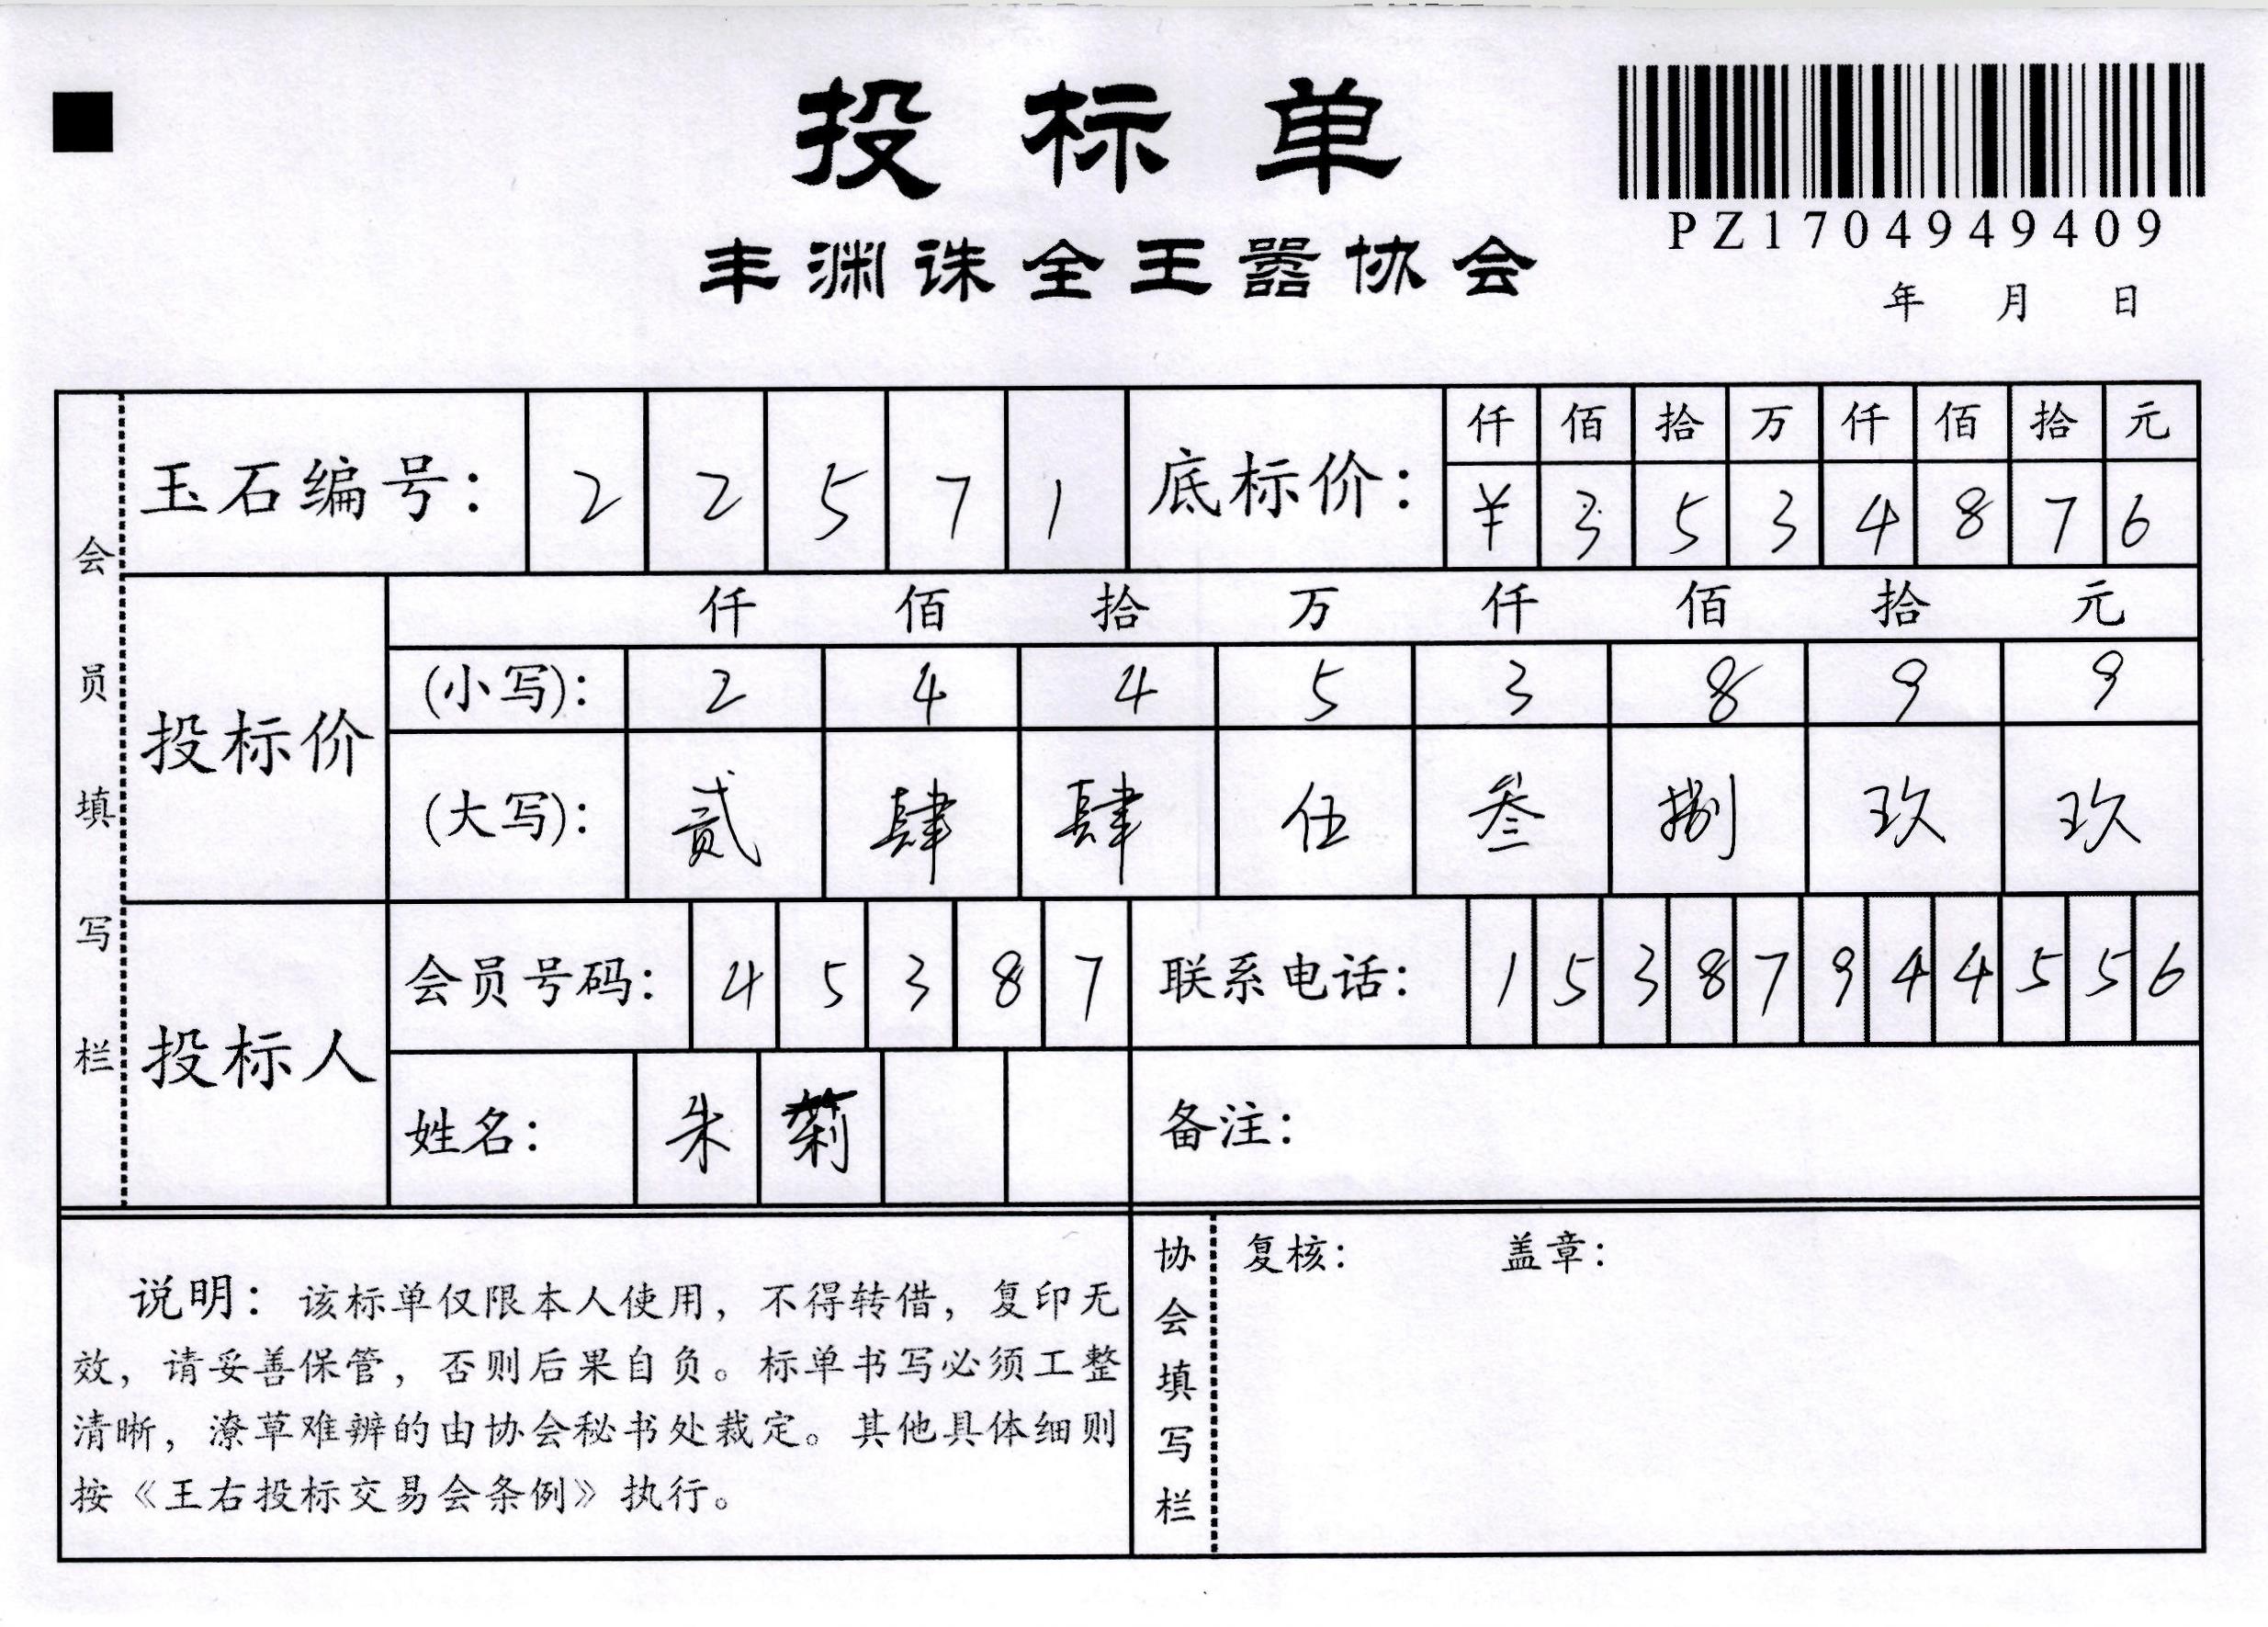 投标单
丰渊诛全王嚣协会
PZ1704949409
年 月 日
会员填写栏
玉石编号： 2 2 5 7 1
底标价： 仟 佰 拾 万 仟 佰 拾 元
¥ 3 5 3 4 8 7 6
投标价
仟 佰 拾 万 仟 佰 拾 元
(小写)： 2 4 4 5 3 8 9 9
(大写)： 贰 肆 肆 伍 叁 捌 玖 玖
投标人
会员号码： 4 5 3 8 7
联系电话： 1 5 3 8 7 9 4 4 5 5 6
姓名： 朱
备注：
说明：该标单仅限本人使用，不得转借，复印无
效，请妥善保管，否则后果自负。标单书写必须工整
清晰，潦草难辨的由协会秘书处裁定。其他具体细则
按《王右投标交易会条例》执行。
协会填写栏
复核： 盖章：